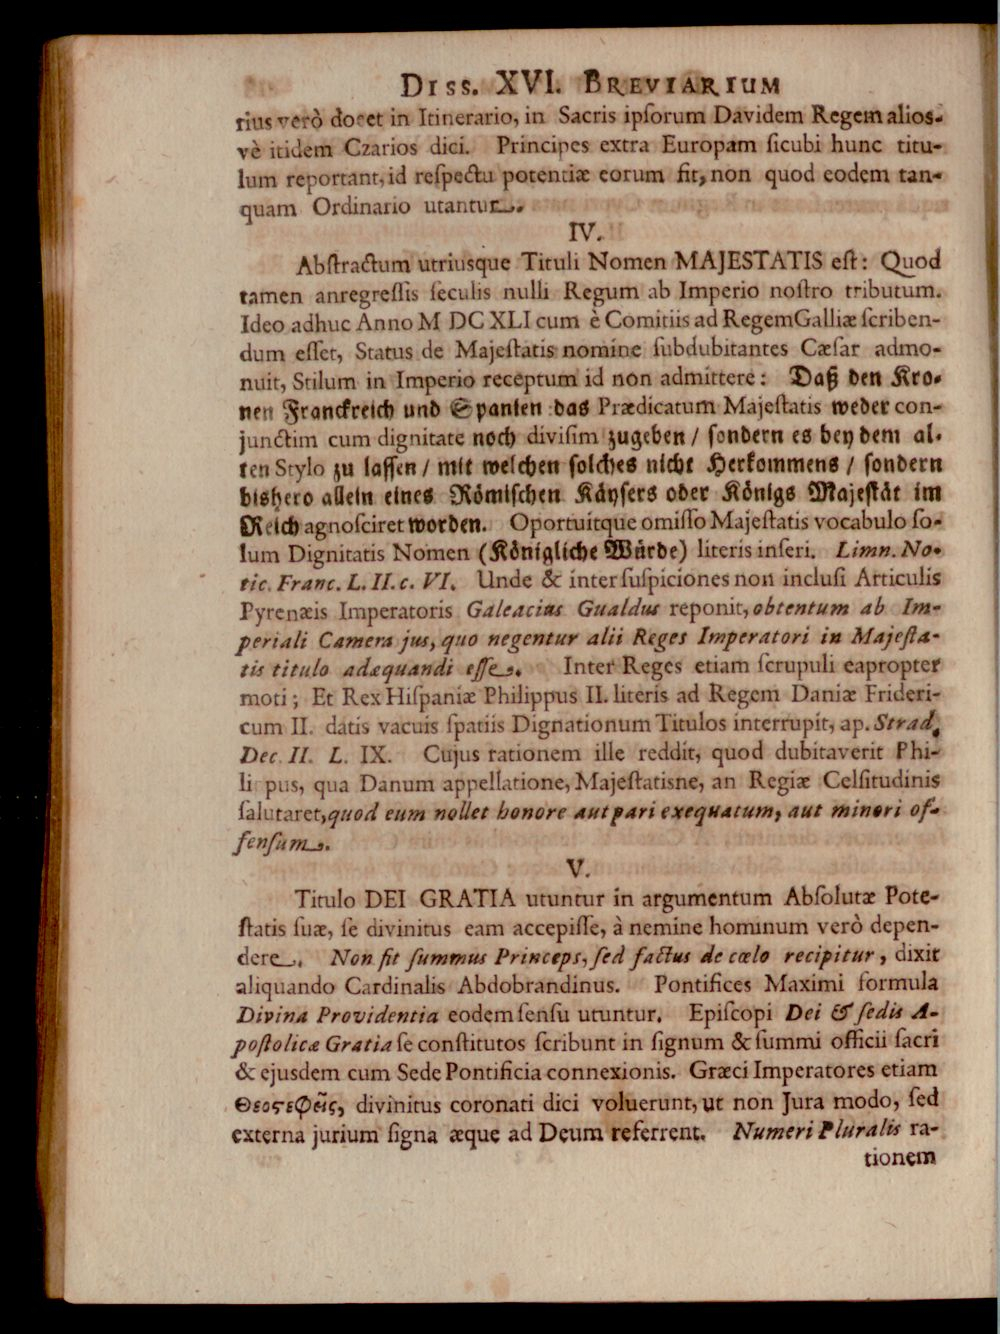 DISS. XVI. BREVIARIUM
rius verò docet in Itinerario, in Sacris ipſorum Davidem Regem alios-
vè itidem Czarios dici. Principes extra Europam ſicubi hunc titu-
lum reportant, id reſpectu potentiæ eorum fit, non quod eodem tan-
quam Ordinario utantur.
IV.
Abſtractum utriusque Tituli Nomen MAJESTATIS eſt: Quod
tamen anregreſſis ſeculis nulli Regum ab Imperio noſtro tributum.
Ideo adhuc Anno M DC XLI cum è Comitiis ad Regem Galliæ ſcriben-
dum eſſet, Status de Majeſtatis nomine ſubdubitantes Cæſar admo-
nuit, Stilum in Imperio receptum id non admittere: Daß den Kro-
nen Franckreich und Spanien das Prædicatum Majeſtatis weder con-
junctim cum dignitate noch diviſim zugeben / ſondern es bey dem al-
ten Stylo zu laſſen / mit welchen ſolches nicht Herkommens / ſondern
bishero allein eines Römiſchen Käyſers oder Königs Majeſtät im
Reich agnoſciret worden. Oportuitque omiſſo Majeſtatis vocabulo ſo-
lum Dignitatis Nomen (Königliche Würde) literis inſeri. Limn. No-
tic. Franc. L. II. c. VI. Unde & inter ſuſpiciones non incluſi Articulis
Pyrenæis Imperatoris Galeacius Gualdus reponit, obtentum ab Im-
periali Camera jus, quo negentur alii Reges Imperatori in Majeſta-
tis titulo adæquandi eſſe. Inter Reges etiam ſcrupuli eapropter
moti; Et Rex Hiſpaniæ Philippus II. literis ad Regem Daniæ Frideri-
cum II. datis vacuis ſpatiis Dignationum Titulos interrupit, ap. Strad.
Dec. II. L. IX. Cujus rationem ille reddit, quod dubitaverit Phi-
li pus, qua Danum appellatione, Majeſtatisne, an Regiæ Celſitudinis
ſalutaret, quod eum nollet honore aut pari exequatum, aut minori of-
fenſum.
V.
Titulo DEI GRATIA utuntur in argumentum Abſolutæ Pote-
ſtatis ſuæ, ſe divinitus eam accepiſſe, à nemine hominum verò depen-
dere. Non fit ſummus Princeps, ſed factus de cœlo recipitur, dixit
aliquando Cardinalis Abdobrandinus. Pontifices Maximi formula
Divina Providentia eodem ſenſu utuntur. Epiſcopi Dei & ſedis A-
poſtolicæ Gratia ſe conſtitutos ſcribunt in ſignum & ſummi officii ſacri
& ejusdem cum Sede Pontificia connexionis. Græci Imperatores etiam
Θεοςεφεῖς, divinitus coronati dici voluerunt, ut non Jura modo, ſed
externa jurium ſigna æque ad Deum referrent. Numeri Pluralis ra-
tionem